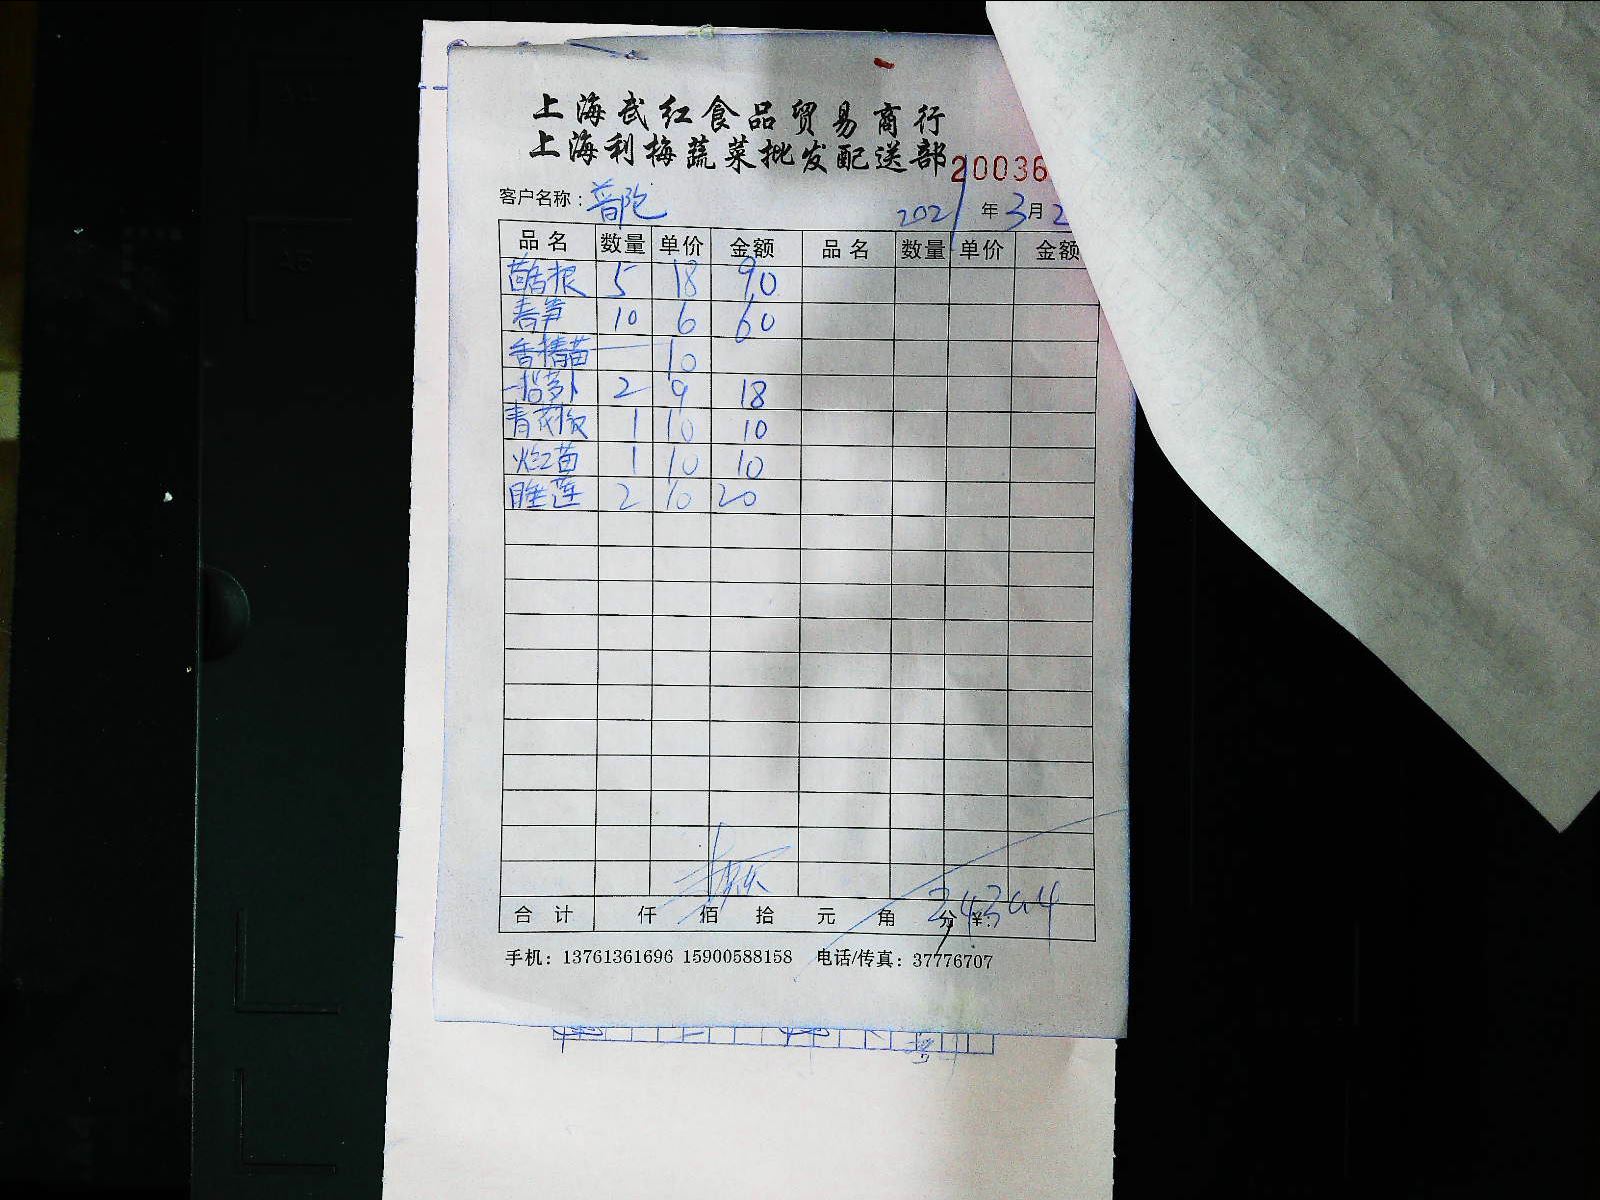 上海武红食品贸易商行
上海利梅蔬菜批发配送部 20036
客户名称：普陀 2021年3月2
品名 数量 单价 金额 品名 数量 单价 金额
5 18 90
春笋 10 6 60
10
一指萝卜 2 9 18
青花椒 1 10 10
苗 1 10 10
睡莲 2 10 20
合计 仟 佰 拾 元 角 分 ¥:
手机：13761361696 15900588158 电话/传真：37776707